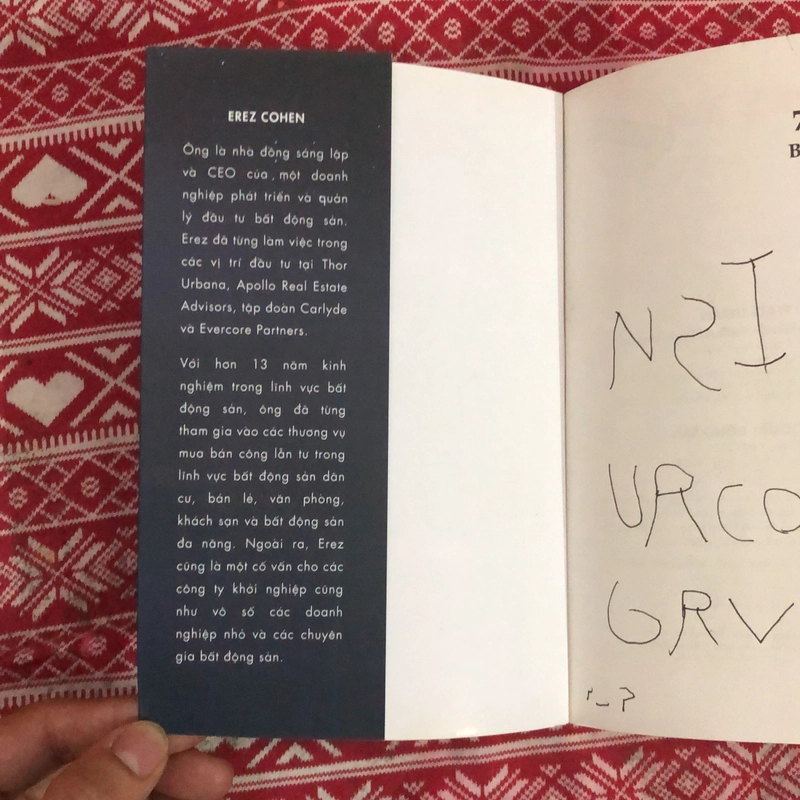 EREZ COHEN
Ông là nhà đồng sáng lập
và CEO của một doanh
nghiệp phát triển và quản
lý đầu tư bất động sản.
Erez đã từng làm việc trong
các vị trí đầu tư tại Thor
Urbana, Apollo Real Estate
Advisors, tập đoàn Carlyde
và Evercore Partners.
Với hơn 13 năm kinh
nghiệm trong lĩnh vực bất
động sản, ông đã từng
tham gia vào các thương vụ
mua bán công lẫn tư trong
lĩnh vực bất động sản dân
cư, bán lẻ, văn phòng,
khách sạn và bất động sản
đa năng. Ngoài ra, Erez
cũng là một cố vấn cho các
công ty khởi nghiệp cũng
như vô số các doanh
nghiệp nhỏ và các chuyên
gia bất động sản.
7
B
URCO
GRV